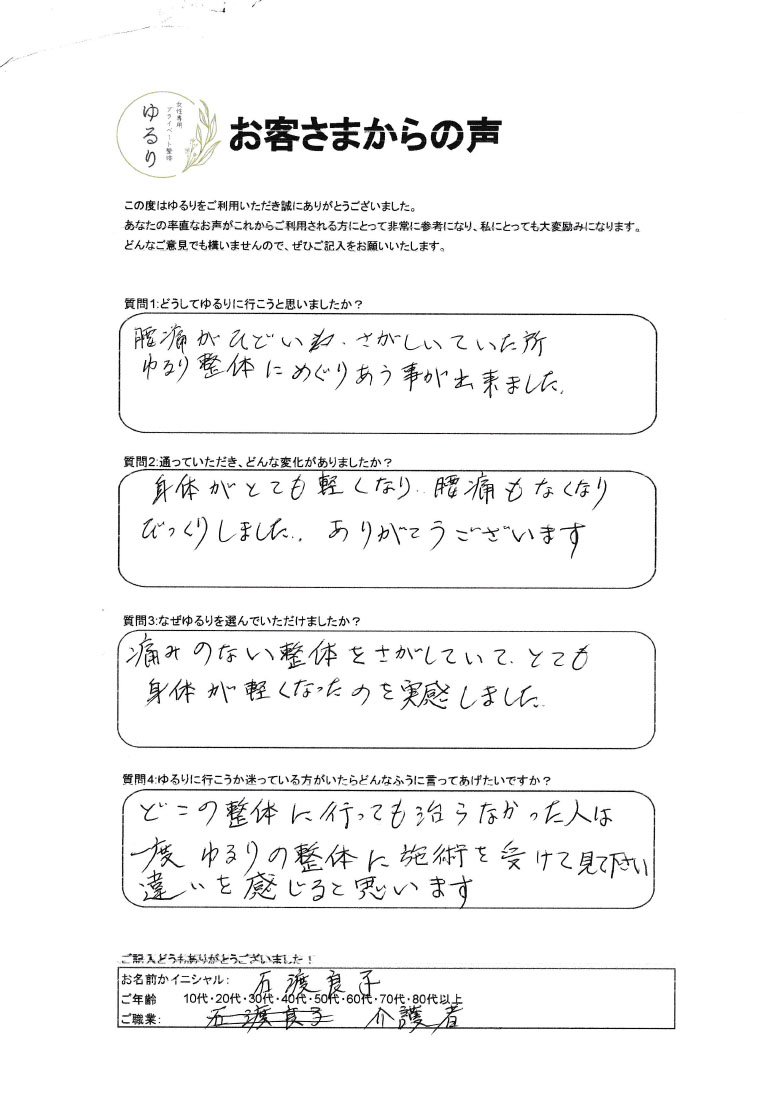 女性専用
プライベート整体
ゆるり
お客さまからの声
この度はゆるりをご利用いただき誠にありがとうございました。
あなたの率直なお声がこれからご利用される方にとって非常に参考になり、私にとっても大変励みになります。
どんなご意見でも構いませんので、ぜひご記入をお願いいたします。
質問1:どうしてゆるりに行こうと思いましたか？
腰痛がひどい さがしいていた所
ゆるり整体にめぐりあう事が出来ました。
質問2:通っていただき、どんな変化がありましたか？
身体がとても軽くなり、腰痛もなくなり
びっくりしました。ありがとうございます
質問3:なぜゆるりを選んでいただけましたか？
痛みのない整体をさがしていて、とても
身体が軽くなったのを実感しました。
質問4:ゆるりに行こうか迷っている方がいたらどんなふうに言ってあげたいですか？
どこの整体に行っても治らなかった人は
一度ゆるりの整体に施術を受けて見て下さい
違いを感じると思います
ご記入どうもありがとうございました！
お名前かイニシャル: 石渡良子
ご年齢 10代・20代・30代・40代・50代・60代・70代・80代以上
ご職業: 石渡良子 介護者